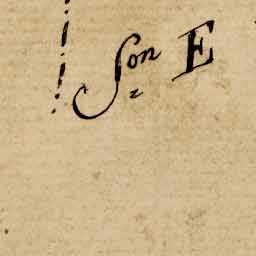 Son E